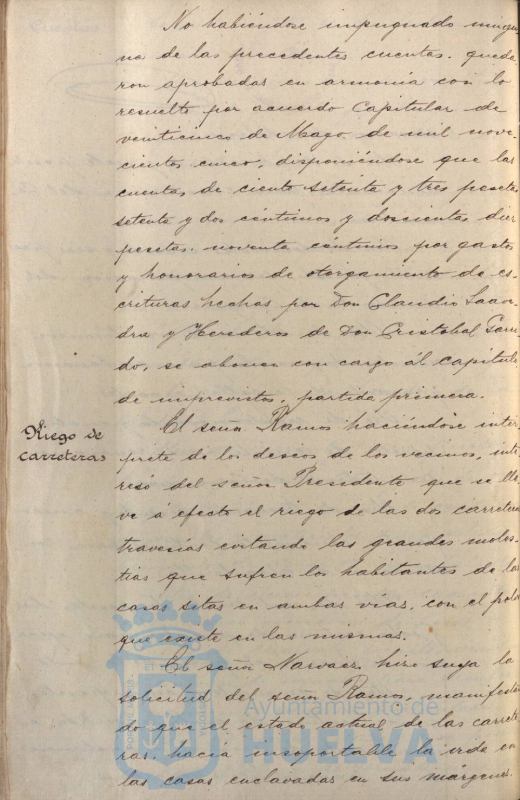 No habiéndose impugnado ningu-
na de las precedentes cuentas, queda-
ron aprobadas en armonía con lo
resuelto por acuerdo Capitular de
veinticinco de Mayo de mil nove-
cientos cinco, disponiéndose que las
cuentas de ciento setenta y tres pesetas
setenta y dos céntimos y doscientas diez
pesetas, noventa céntimos por gastos
y honorarios de otorgamiento de es-
crituras hechas por Don Claudio Saave-
dra y Herederos de Don Cristobal Garri-
do, se abonen con cargo ál capitulo
de imprevistos, partida primera.
Riego de
carreteras
El señor Ramos haciéndose intér-
prete de los deseos de los vecinos, inte-
resó del señor Presidente que se lle-
ve a efecto el riego de las dos carreteras
travesías evitando las grandes moles-
tias que sufren los habitantes de las
casas sitas en ambas vías, con el polvo
que existe en las mismas.
El señor Narvaez hizo suya la
solicitud del señor Ramos, manifestan-
do que el estado actual de las carrete-
ras, hacía insoportable la vida en
las casas enclavadas en sus márgenes.
Ayuntamiento de
HUELVA